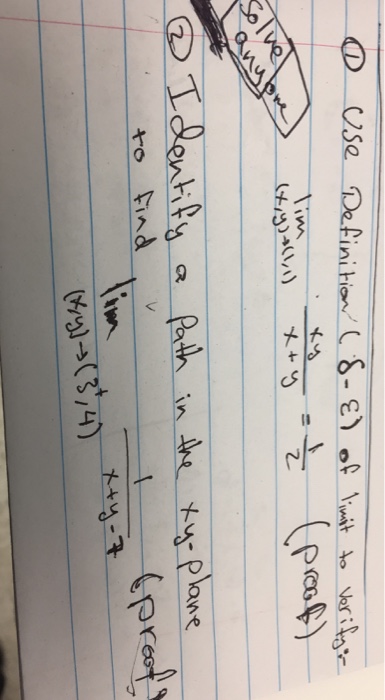 ① Use Definition (δ-ε) of limit to verify:-
lim xy/x+y = 1/2 (proof)
(x,y)→(1,1)
Solve
anyone
② Identify a path in the xy-plane
to find lim 1/x+y-7 (proof)
(x,y)→(3⁺,4)